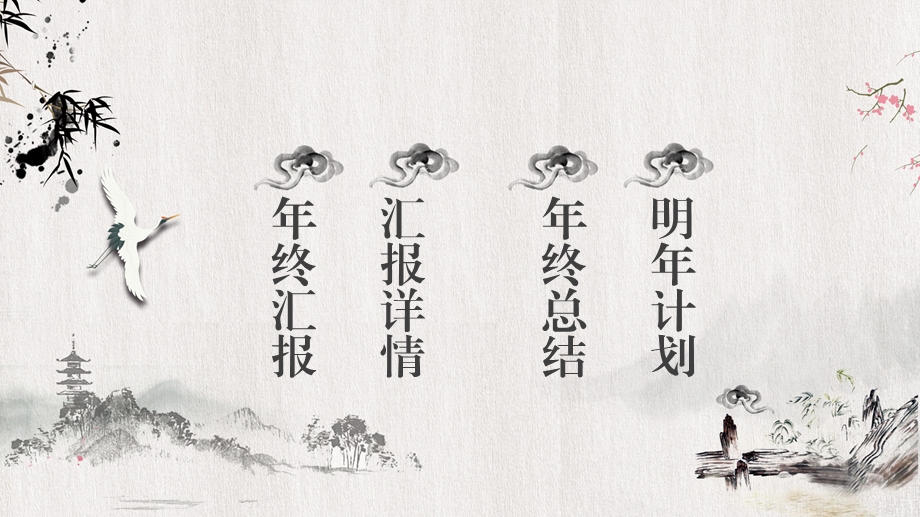 年终汇报
汇报详情
年终总结
明年计划